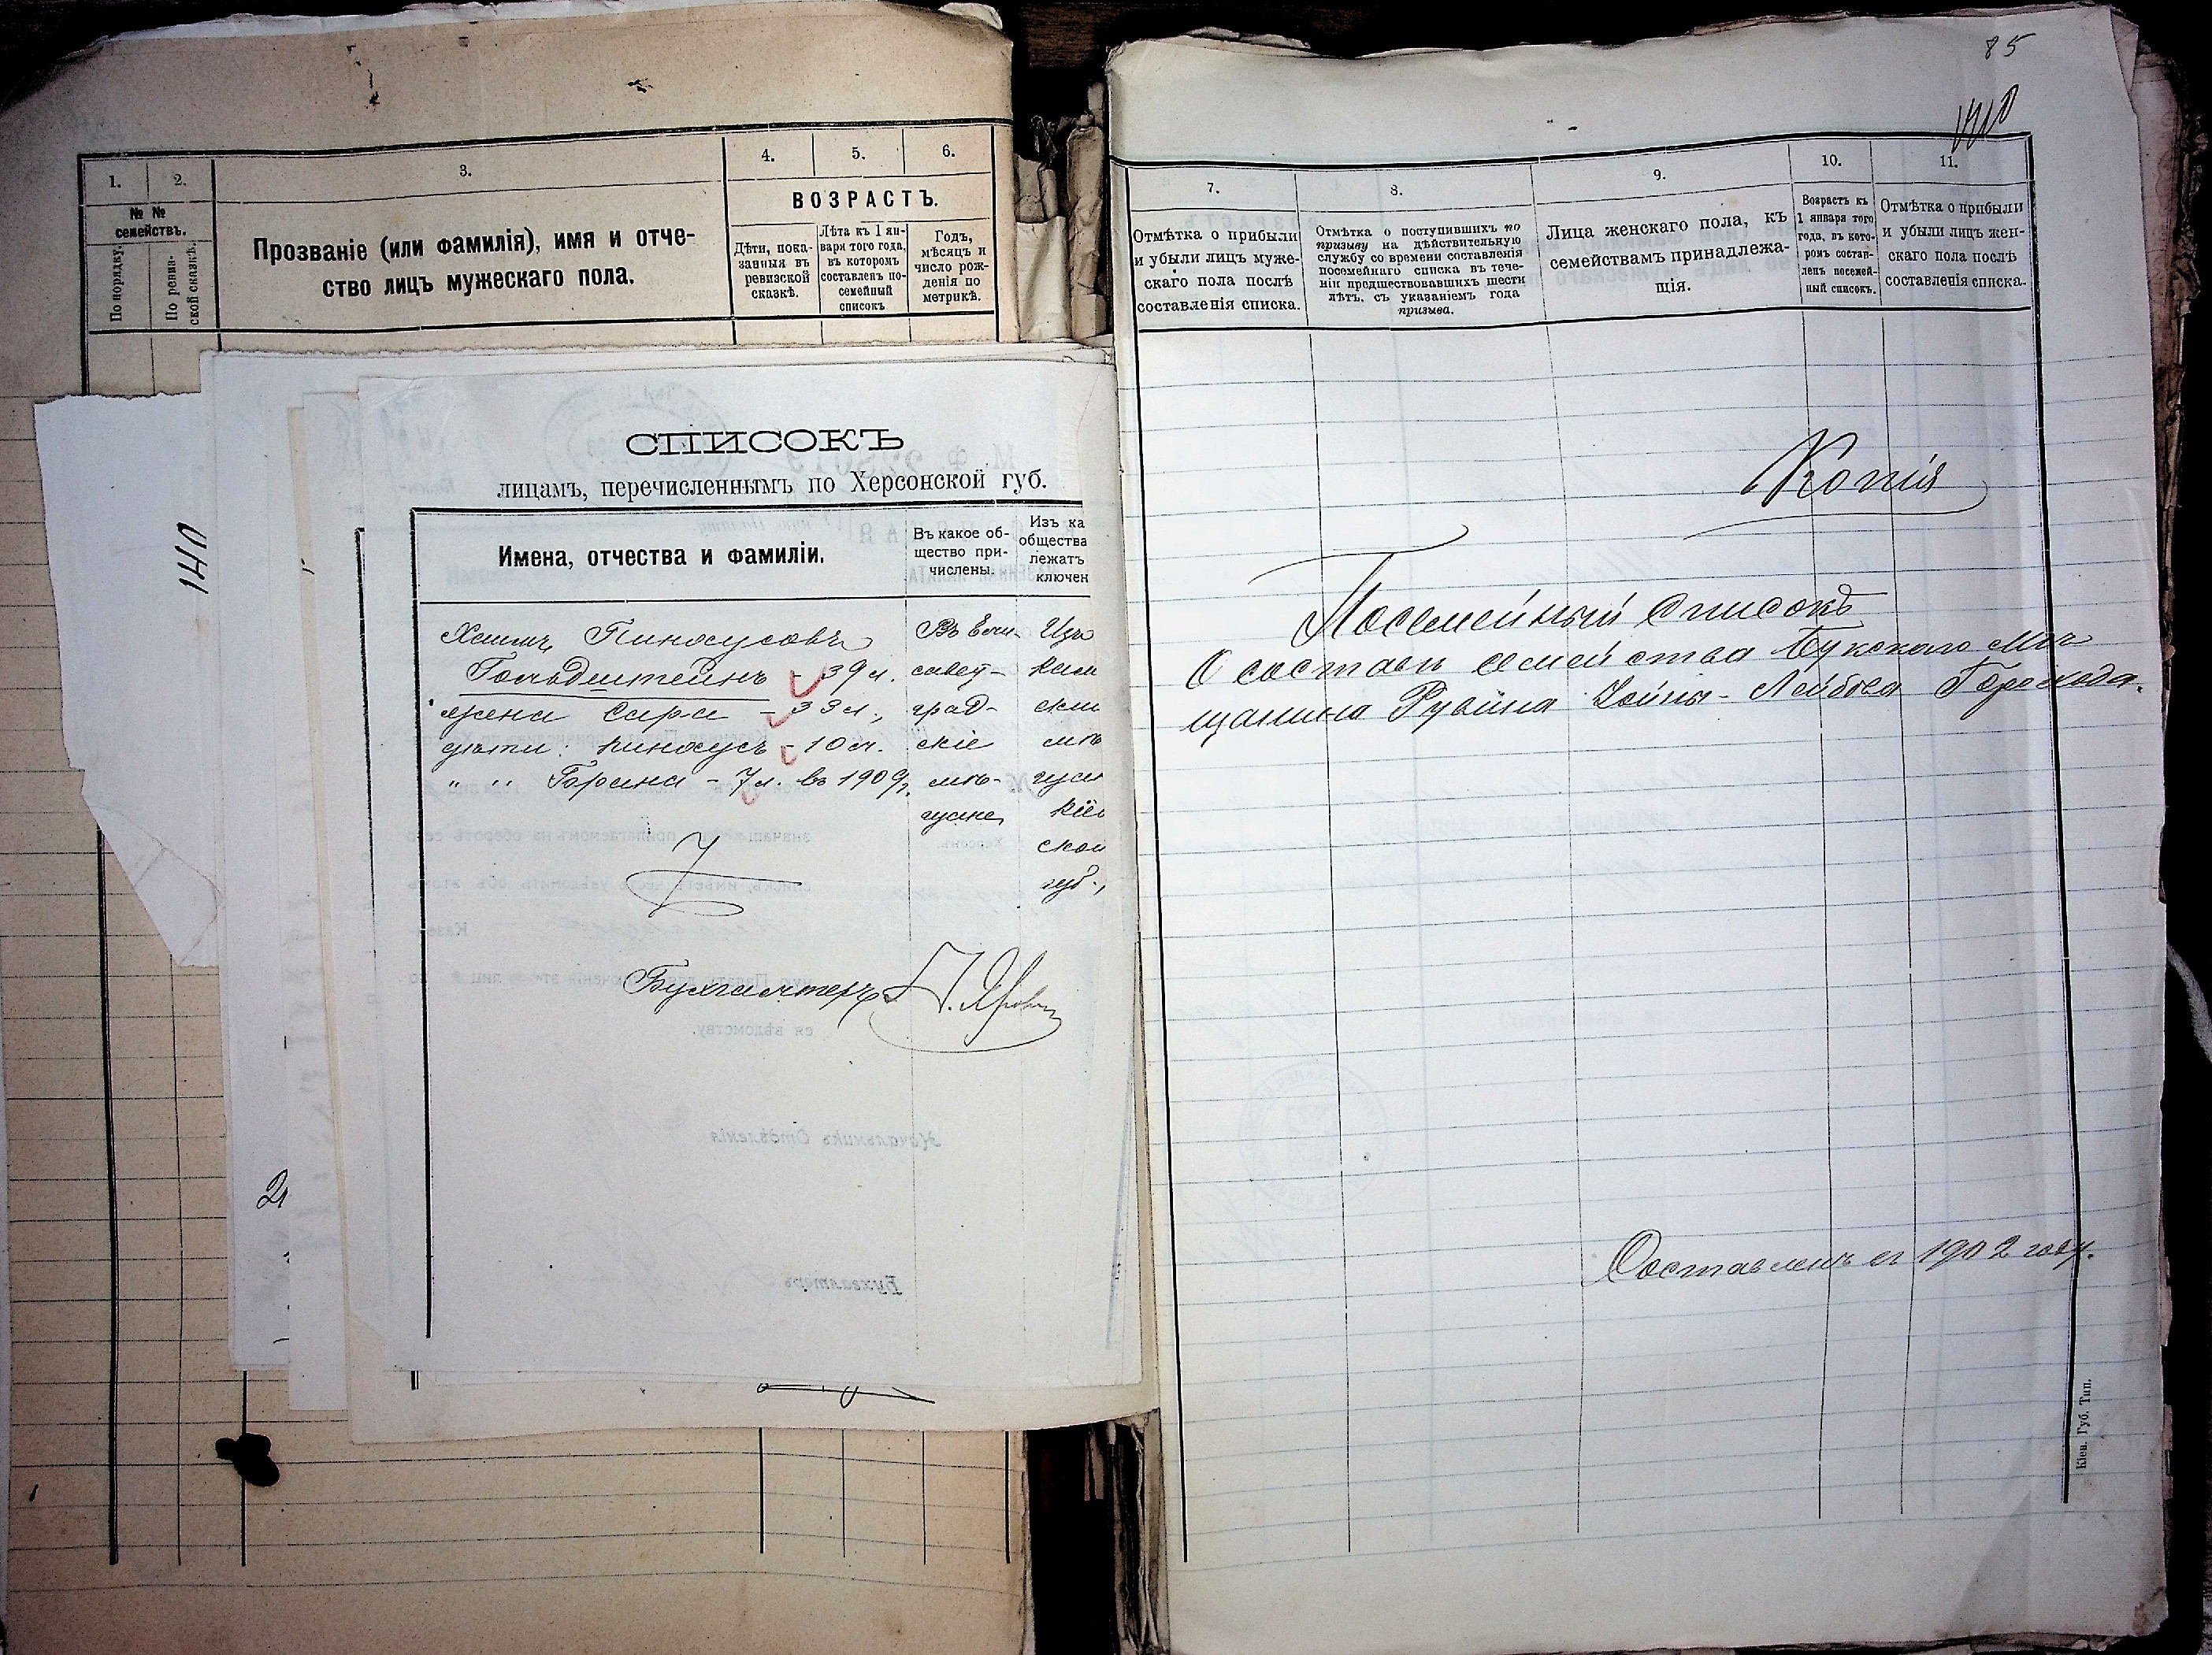 1.
2.
3.
4.
5.
6.
№ №
семействъ.
По порядку.
По ревиз-
ской сказкѣ.
Прозваніе (или фамилія), имя и отче-
ство лицъ мужескаго пола.
ВОЗРАСТЪ.
Дѣти, пока-
занныя въ
ревизской
сказкѣ.
Лѣта къ 1 ян-
варя того года,
въ которомъ
составленъ по-
семейный
списокъ
Годъ,
мѣсяцъ и
число рож-
денія по
метрикѣ.
СПИСОКЪ
лицамъ, перечисленнымъ по Херсонской губ.
Имена, отчества и фамиліи.
Въ какое об-
щество при-
числены.
Изъ ка
общества
лежатъ
ключен
Хаимъ Пинхусовъ
Гольдштейнъ - 39 л.
жена Сара - 33 л.,
дѣти: Пинхусъ - 10 л.
" " - 7 л. въ 1909 г.
Въ Ели-
савет-
град-
скіе
мѣ-
щане,
Изъ
скои
губ.,
Бухгалтеръ
85
7.
8.
9.
10.
11.
Отмѣтка о прибыли
и убыли лицъ муже-
скаго пола послѣ
составленія списка.
Отмѣтка о поступившихъ по
призыву на дѣйствительную
службу со времени составленія
посемейнаго списка въ тече-
ніи предшествовавшихъ шести
лѣтъ, съ указаніемъ года
призыва.
Лица женскаго пола, къ
семействамъ принадлежа-
щія.
Возрастъ къ
1 января того
года, въ кото-
ромъ состав-
ленъ посемей-
ный списокъ.
Отмѣтка о прибыли
и убыли лицъ жен-
скаго пола послѣ
составленія списка.
Копія
Посемейный списокъ
О составѣ семейства Букскаго мѣ-
щанина Рувина Хойна-Лейбова
Составленъ въ 1902 году.
Кіев. Губ. Тип.